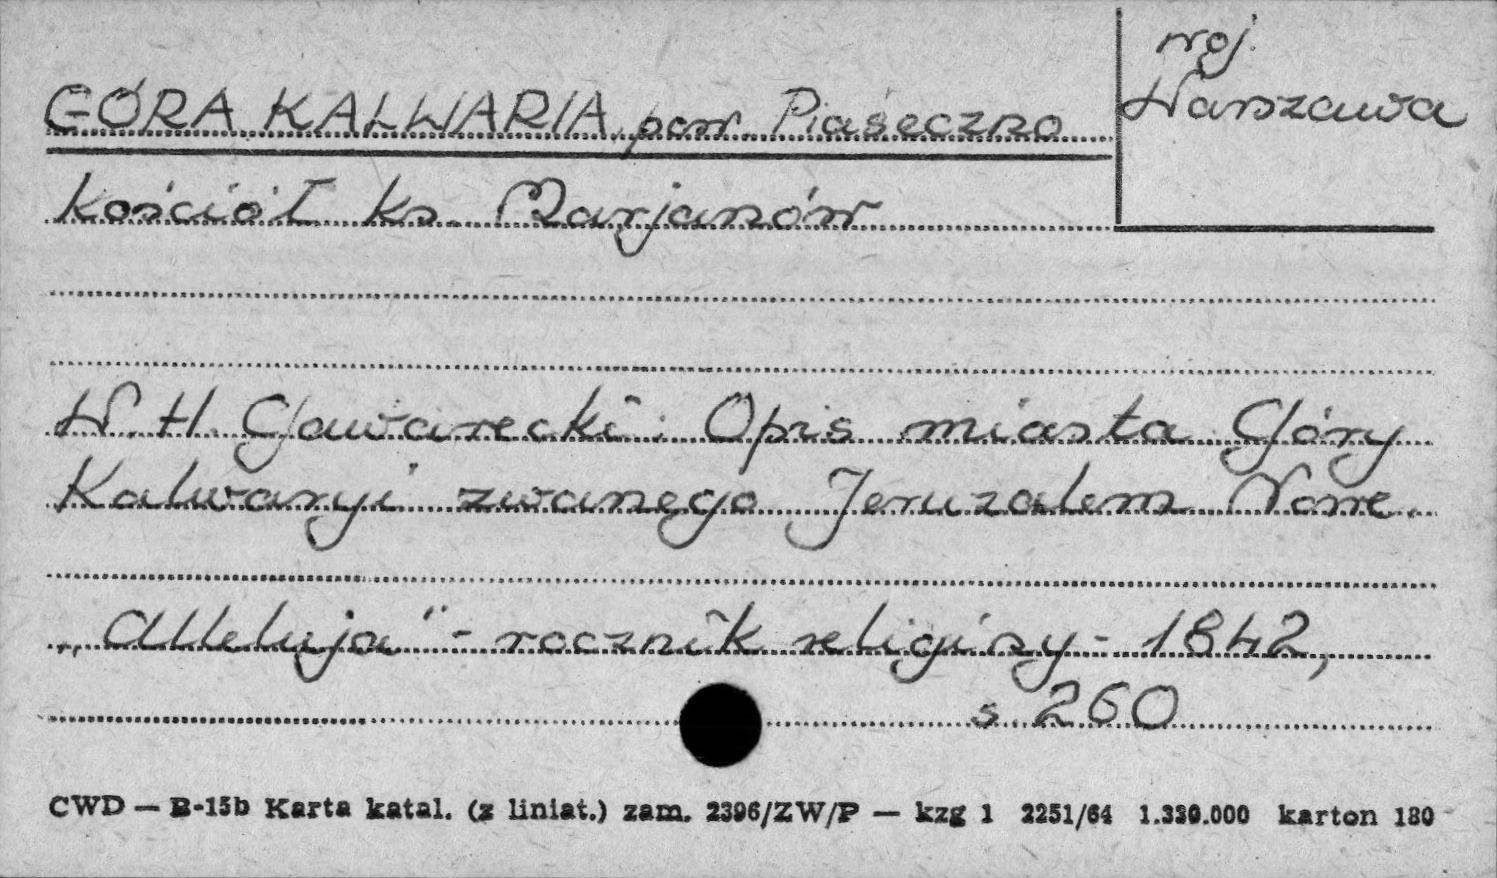 GÓRA KALWARIA, pow. Piaseczno
woj.
Warszawa
kościół ks. Marjanów
W. H. Gawarecki: Opis miasta Góry
Kalwaryi zwanego Jeruzalem Nowe.
„Alleluja" - rocznik religijny - 1842,
s. 260
CWD — B-15b Karta katal. (z liniat.) zam. 2396/ZW/P — kzg 1 2251/64 1.330.000 karton 180